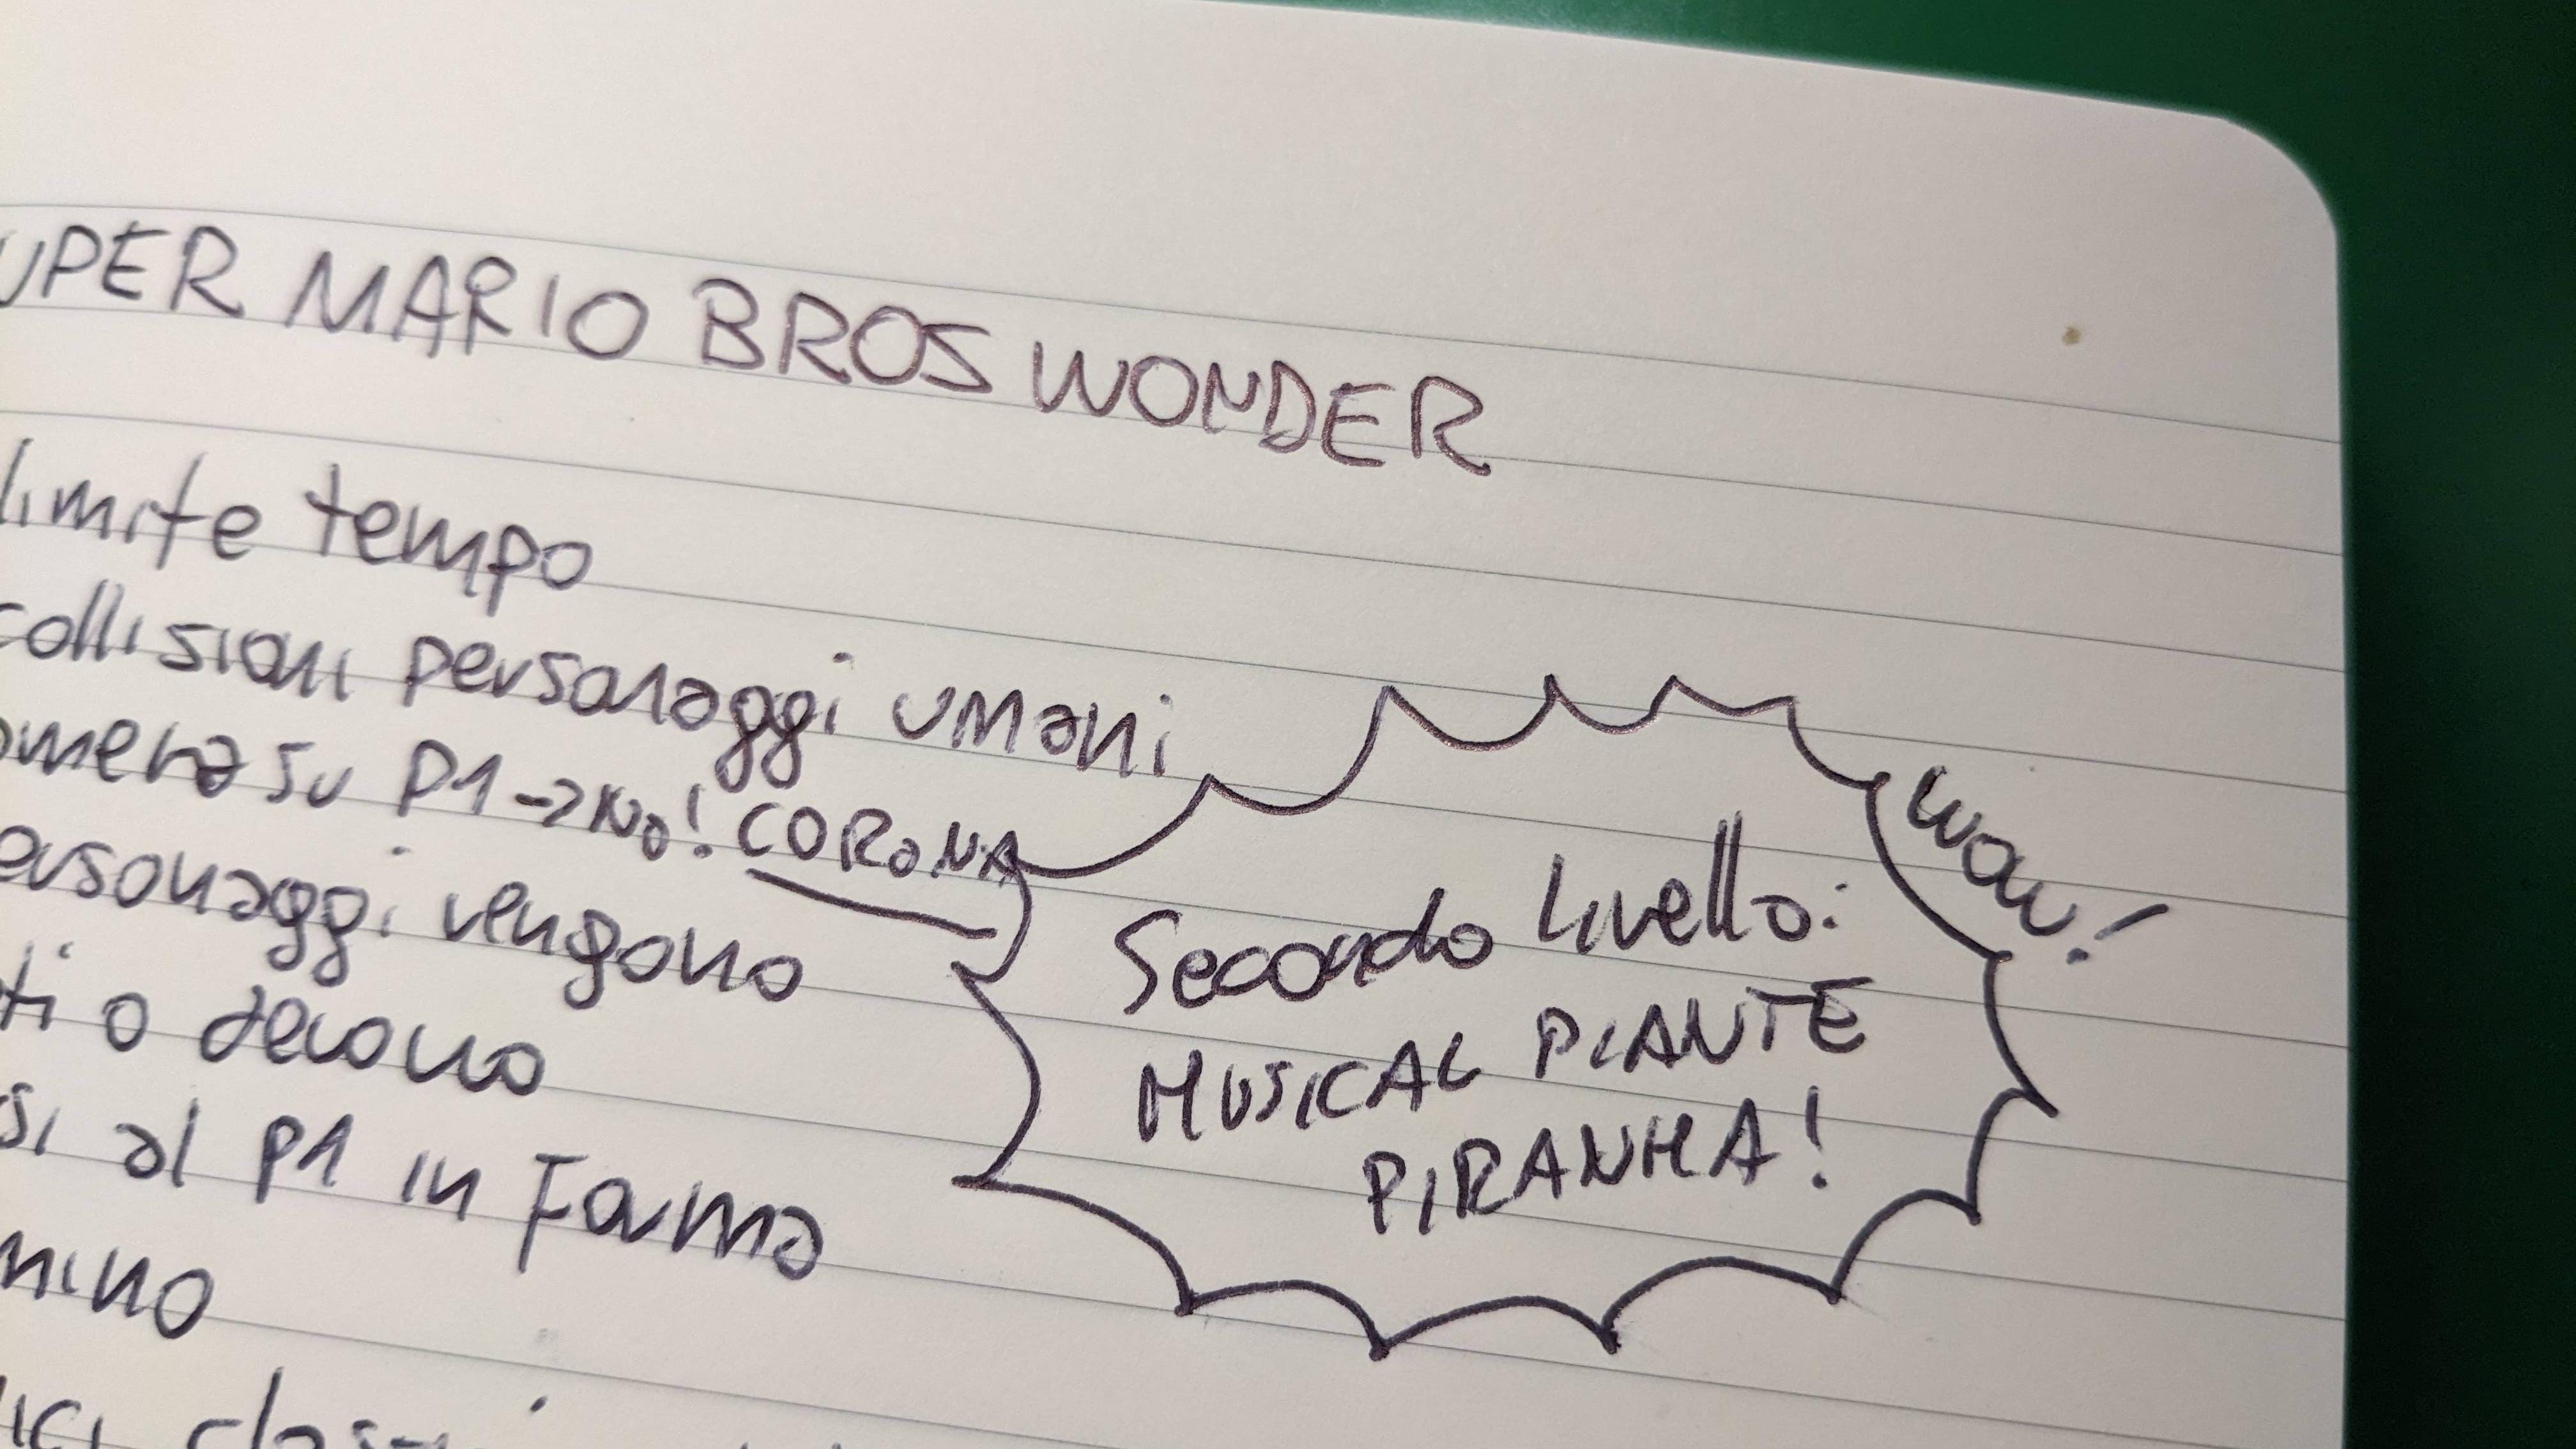 UPER MARIO BROS WONDER
limite tempo
collisioni personaggi umani
amera su P1 -> No! CORONA
ersonaggi vengono
ti o devono
si al P1 in Forma
mino
ici classi
WOW!
Secondo livello:
MUSICAL PIANTE
PIRANHA!